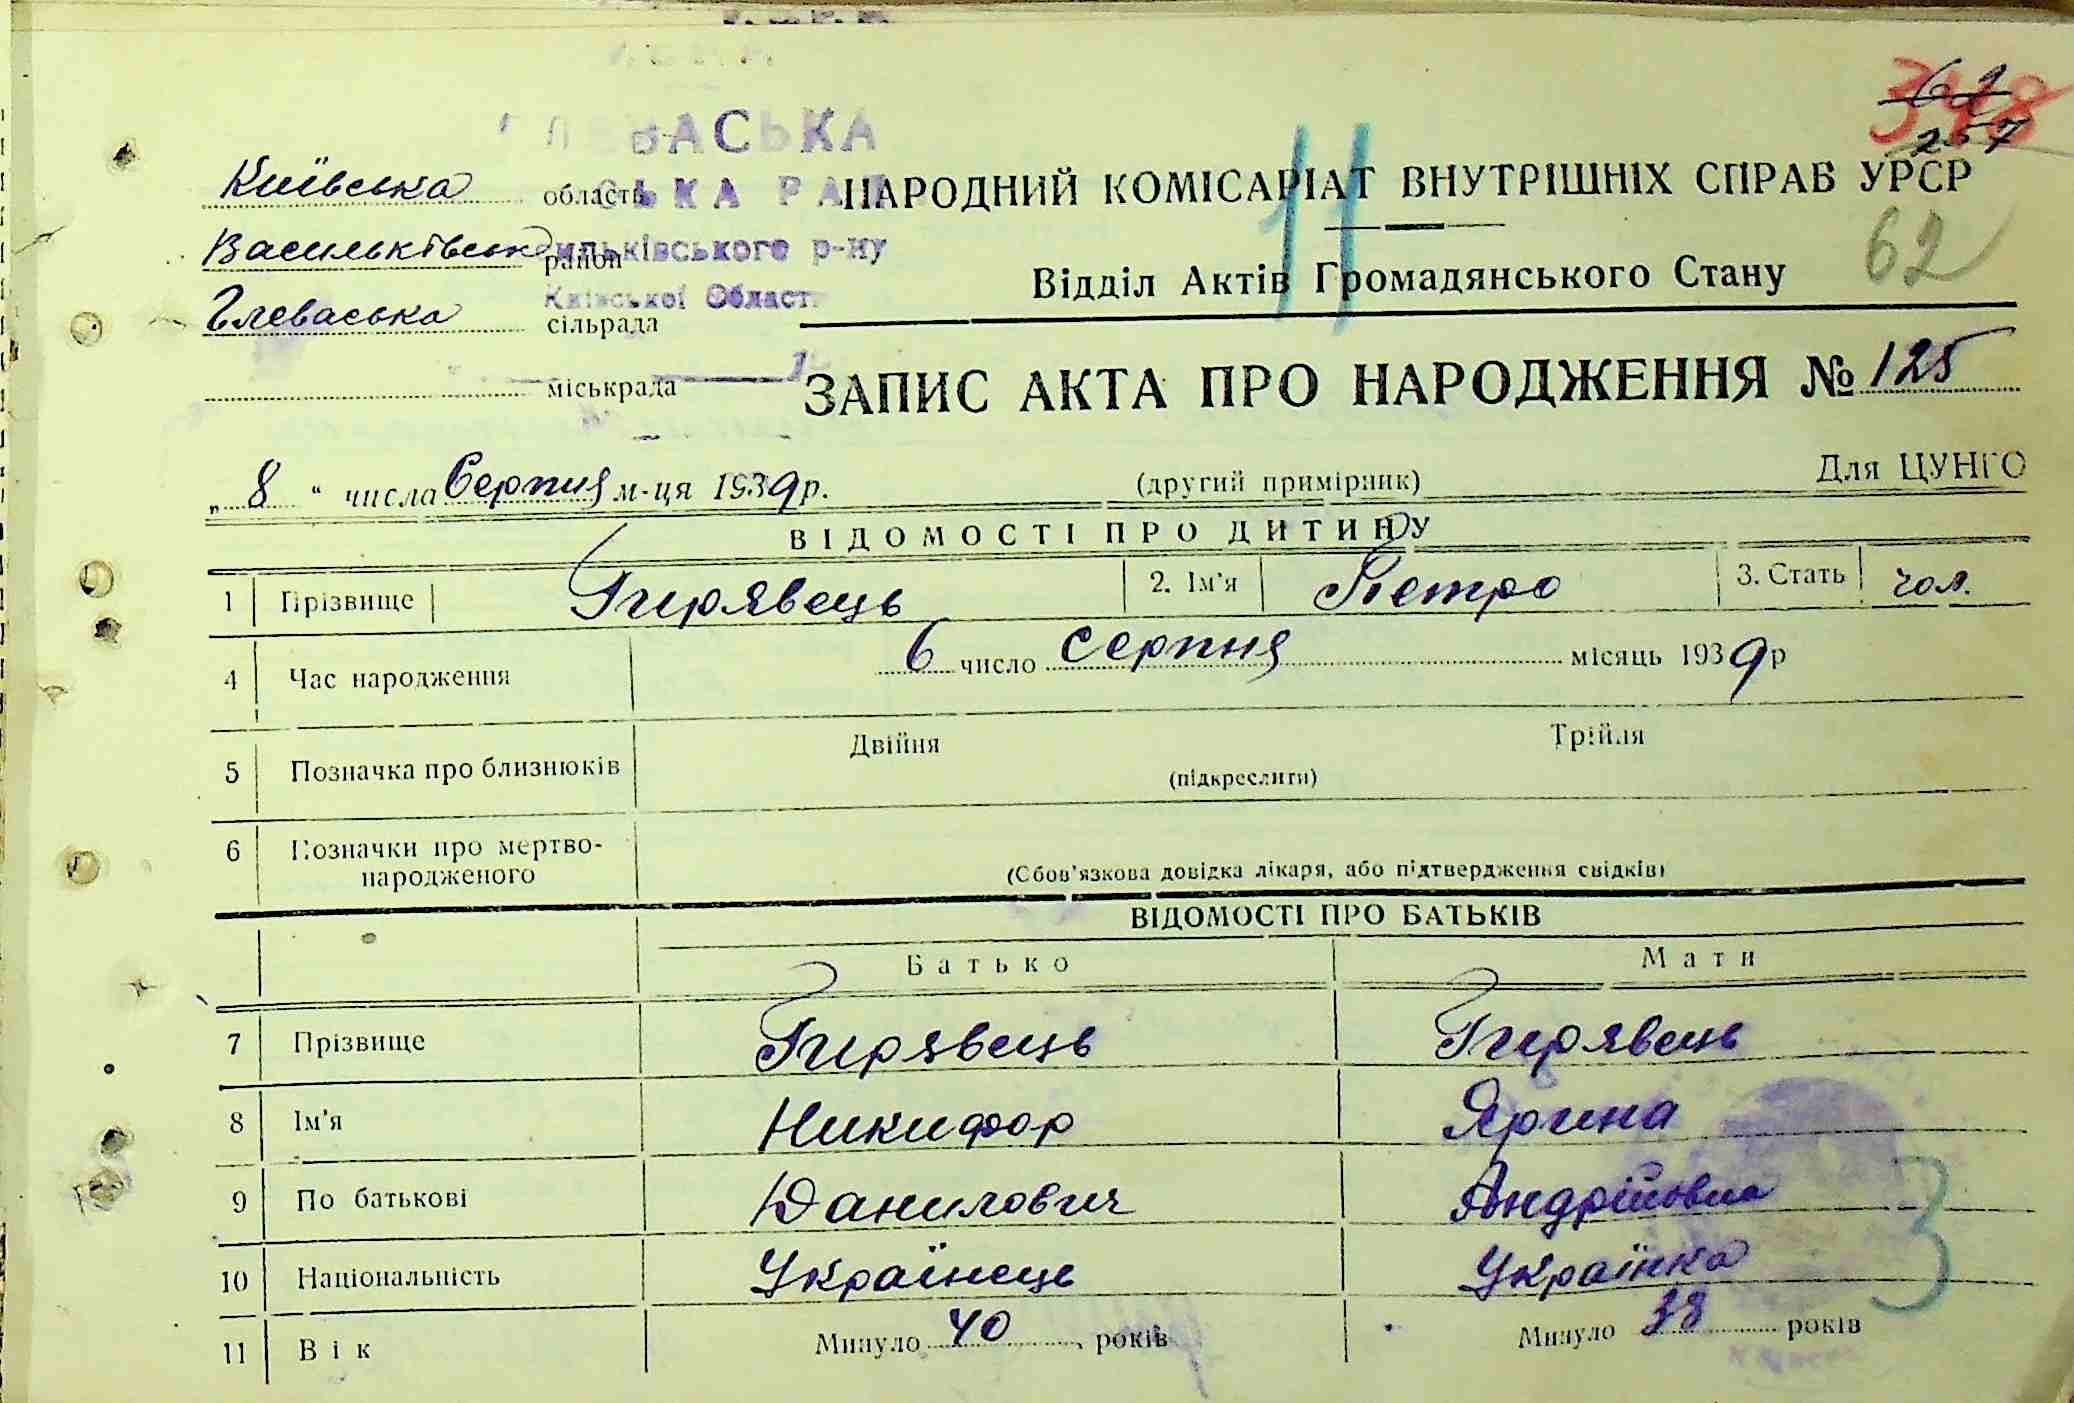 348
62
257
ВАСЬКА
Київська область СЬКА РАД НАРОДНИЙ КОМІСАРІАТ ВНУТРІШНІХ СПРАВ УРСР
11
62
Васильківськ район ильківського р-ну
Відділ Актів Громадянського Стану
Київської Област.
Глеваська сільрада
міськрада
ЗАПИС АКТА ПРО НАРОДЖЕННЯ № 125
„ 8 “ числа Серпня м-ця 1939 р. (другий примірник) Для ЦУНГО
ВІДОМОСТІ ПРО ДИТИНУ
1 Прізвище Гирявець 2. Ім'я Петро 3. Стать чол.
4 Час народження 6 число серпня місяць 1939 р
5 Позначка про близнюків Двійня Трійля
(підкреслити)
6 Позначки про мертво-
народженого (Обов'язкова довідка лікаря, або підтвердження свідків)
ВІДОМОСТІ ПРО БАТЬКІВ
Батько Мати
7 Прізвище Гирявець Гирявець
8 Ім'я Никифор Ярина
9 По батькові Данилович Андріївна
10 Національність Українець Українка
3
11 Вік Минуло 40 років Минуло 38 років